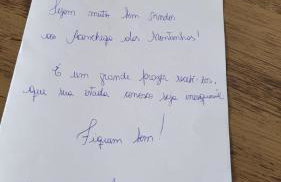 Sejam muito bem vindos
ao Aconchego das Montanhas!
É um grande prazer recebê-los,
que sua estada conosco seja inesquecível
Fiquem bem!